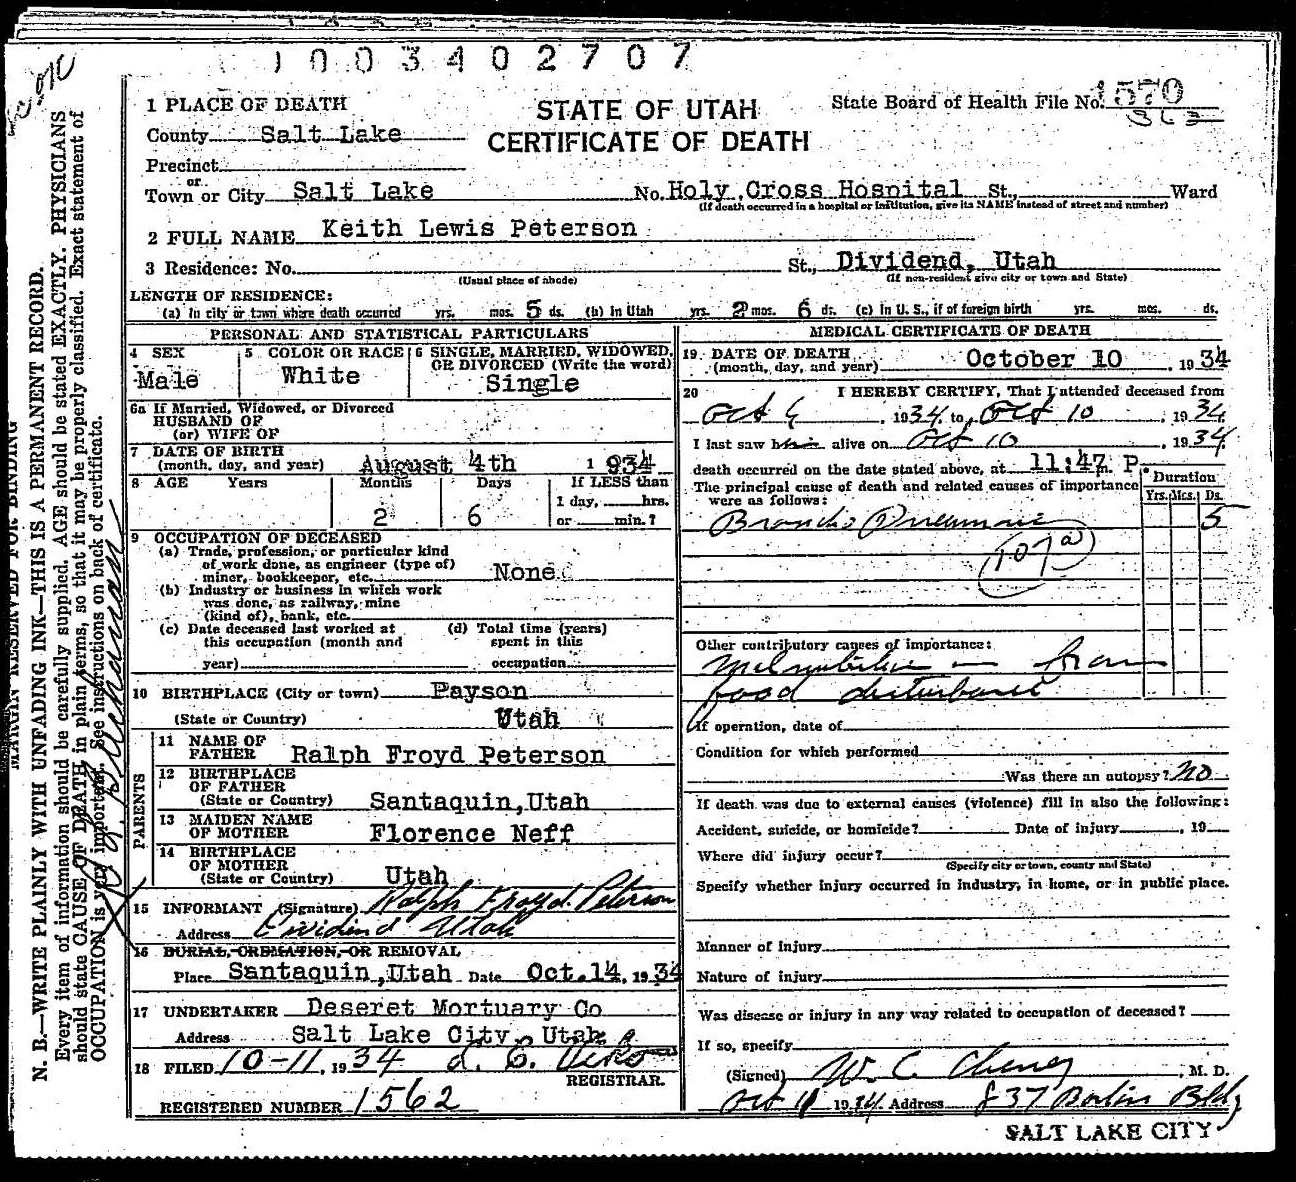 1003402707
1 PLACE OF DEATH
STATE OF UTAH
CERTIFICATE OF DEATH
State Board of Health File No. 1570
County Salt Lake
Precinct
or
Town or City Salt Lake No. Holy Cross Hospital St., Ward
(If death occurred in a hospital or institution, give its NAME instead of street and number)
2 FULL NAME Keith Lewis Peterson
3 Residence: No. St., Dividend, Utah
(Usual place of abode) (If non-resident give city or town and State)
LENGTH OF RESIDENCE:
(a) In city or town where death occurred yrs. mos. 5 ds. (b) In Utah yrs. 2 mos. 6 ds. (c) In U. S., if of foreign birth yrs. mos. ds.
PERSONAL AND STATISTICAL PARTICULARS
4 SEX
Male
5 COLOR OR RACE
White
6 SINGLE, MARRIED, WIDOWED,
OR DIVORCED (Write the word)
Single
6a If Married, Widowed, or Divorced
HUSBAND OF
(or) WIFE OF
7 DATE OF BIRTH
(month, day, and year) August 4th 1934
8 AGE Years Months Days If LESS than
1 day, hrs.
2 6 or min.?
9 OCCUPATION OF DECEASED
(a) Trade, profession, or particular kind
of work done, as engineer (type of)
miner, bookkeeper, etc. None
(b) Industry or business in which work
was done, as railway, mine
(kind of), bank, etc.
(c) Date deceased last worked at
this occupation (month and
year)
(d) Total time (years)
spent in this
occupation
10 BIRTHPLACE (City or town) Payson
(State or Country) Utah
PARENTS
11 NAME OF
FATHER Ralph Froyd Peterson
12 BIRTHPLACE
OF FATHER
(State or Country) Santaquin, Utah
13 MAIDEN NAME
OF MOTHER Florence Neff
14 BIRTHPLACE
OF MOTHER
(State or Country) Utah
15 INFORMANT (Signature) Ralph Froyd Peterson
Address Dividend Utah
16 BURIAL, CREMATION, OR REMOVAL
Place Santaquin, Utah Date Oct. 14, 1934
17 UNDERTAKER Deseret Mortuary Co
Address Salt Lake City, Utah
18 FILED 10-11, 1934
REGISTRAR.
REGISTERED NUMBER 1562
MEDICAL CERTIFICATE OF DEATH
19 DATE OF DEATH
(month, day, and year) October 10, 1934
20 I HEREBY CERTIFY, That I attended deceased from
Oct , 1934, to Oct 10, 1934
I last saw him alive on Oct 10, 1934
death occurred on the date stated above, at 11:47 P.
The principal cause of death and related causes of importance
were as follows:
Duration
Yrs. Mcs. Ds.
Broncho Pneumonia 5
107a
Other contributory causes of importance:
Malnutrition from
food disturbance
If operation, date of
Condition for which performed
Was there an autopsy? no
If death was due to external causes (violence) fill in also the following:
Accident, suicide, or homicide? Date of injury , 19
Where did injury occur?
(Specify city or town, county and State)
Specify whether injury occurred in industry, in home, or in public place.
Manner of Injury
Nature of injury
Was disease or injury in any way related to occupation of deceased?
If so, specify
(Signed) W. C. Cheney, M. D.
Oct 11 1934 Address 837 Bldg
SALT LAKE CITY
MARGIN RESERVED FOR BINDING
N. B.—WRITE PLAINLY WITH UNFADING INK—THIS IS A PERMANENT RECORD.
Every item of information should be carefully supplied. AGE should be stated EXACTLY. PHYSICIANS
should state CAUSE OF DEATH in plain terms, so that it may be properly classified. Exact statement of
OCCUPATION is very important. See instructions on back of certificate.